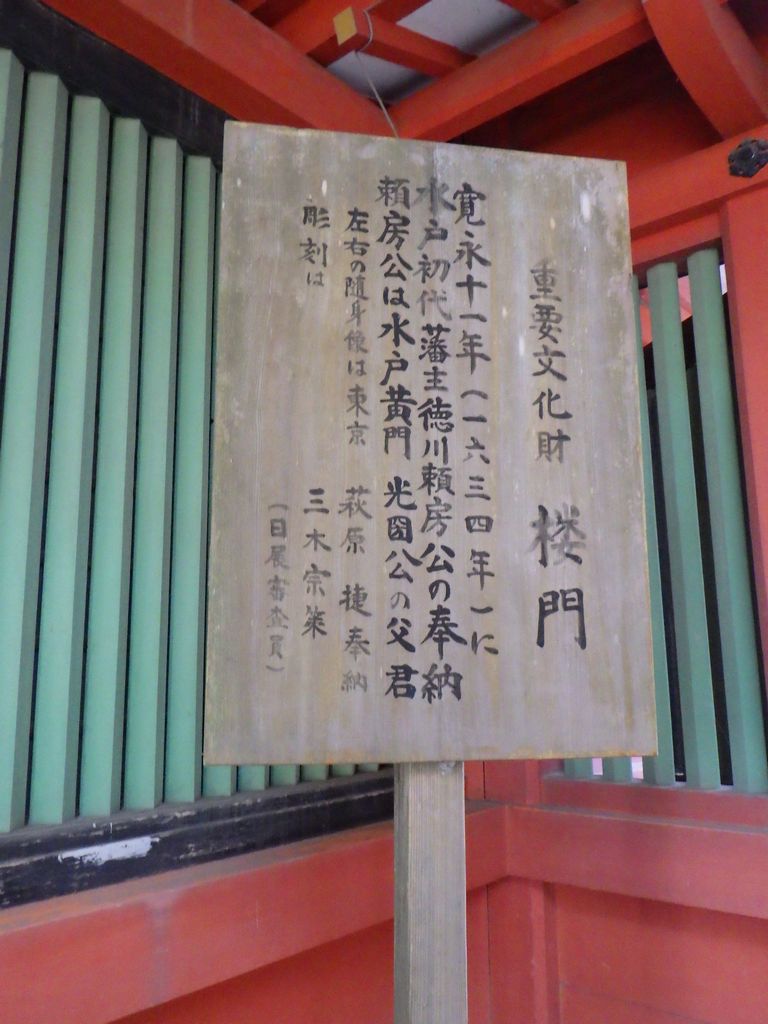 重要文化財 楼門
寛永十一年(一六三四年)に
水戸初代藩主徳川頼房公の奉納
頼房公は水戸黄門 光圀公の父君
左右の随身像は東京 萩原 捷奉納
彫刻は 三木宗策
(日展審査員)